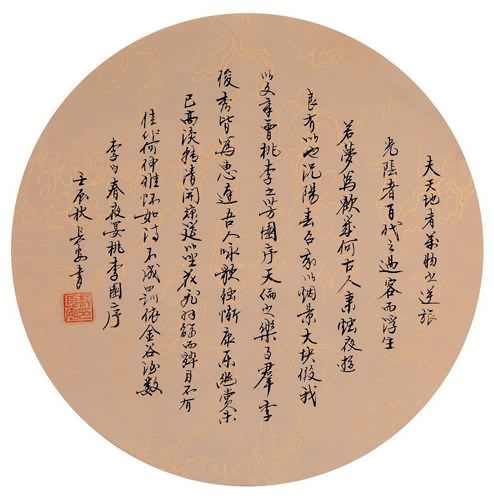 夫天地者萬物之逆旅
光陰者百代之過客而浮生
若夢為歡幾何古人秉燭夜遊
良有以也況陽春召我以烟景大块假我
以文章會桃李之芳園序天倫之樂事羣季
俊秀皆為惠連吾人詠歌獨慚康樂幽賞未
已高談轉清開瓊筵以坐花飛羽觴而醉月不有
佳作何伸雅懷如詩不成罰依金谷酒數
李白春夜宴桃李園序
壬辰秋長安書